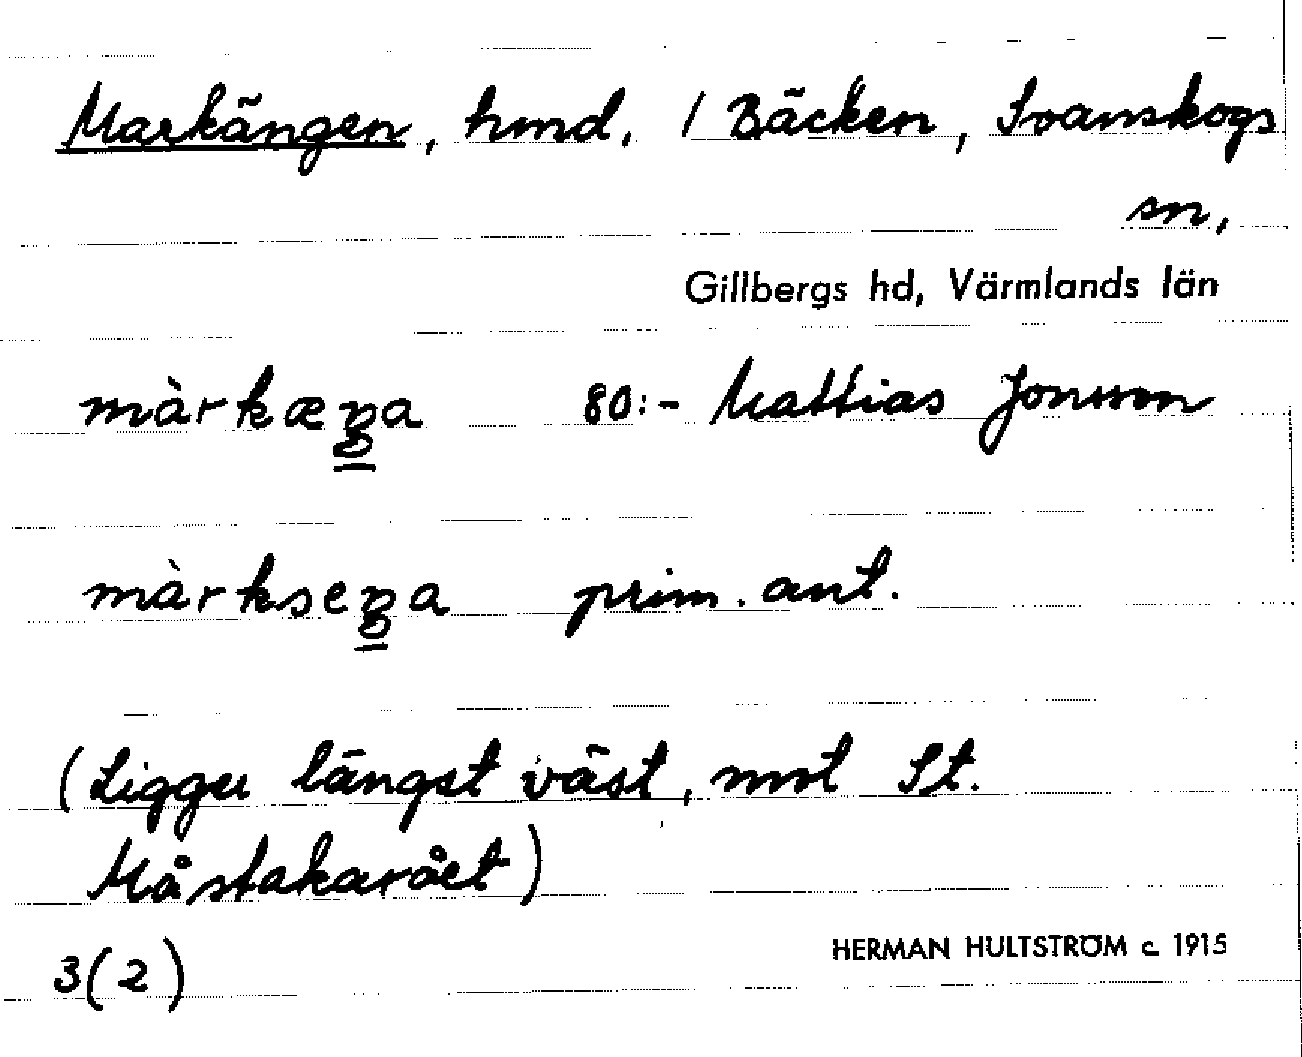 Markängen, hmd. / Bäcken, Svanskogs
sn,
Gillbergs hd, Värmlands län
màrkæŋa 80:- Mattias Jonsson
màrkseŋa prim. ant.
(Ligger längst väst, mot St.
Måstakarået)
3(2)
HERMAN HULTSTRÖM c. 1915